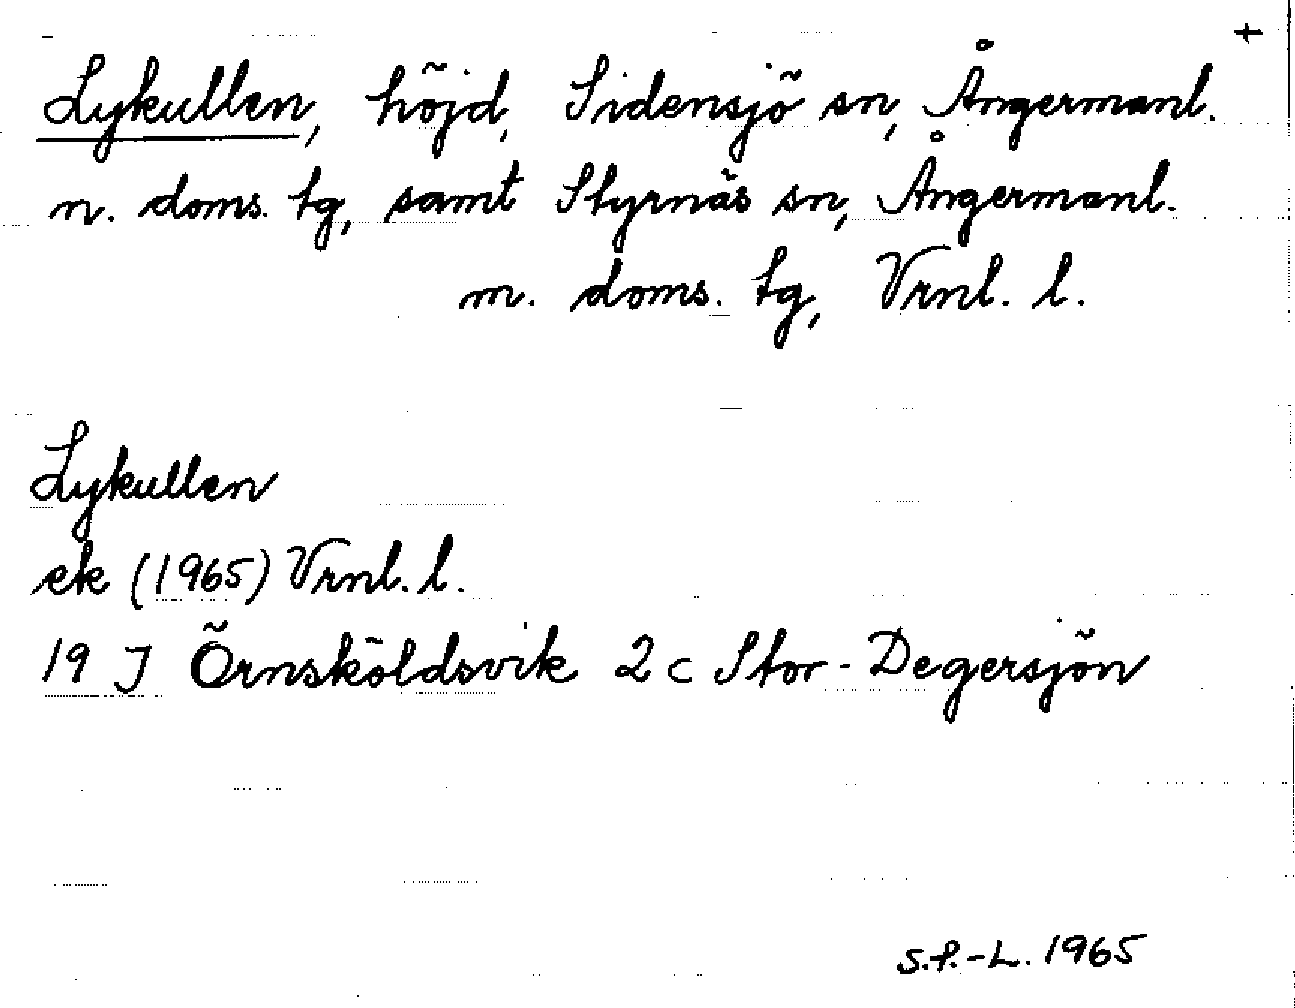 +
Lykullen, höjd, Sidensjö sn, Ångermanl.
n. doms. tg, samt Styrnäs sn, Ångermanl.
m. doms. tg, Vrnl. l.
Lykullen
ek (1965) Vrnl. l.
19 J Örnsköldsvik 2c Stor-Degersjön
S.P.-L. 1965